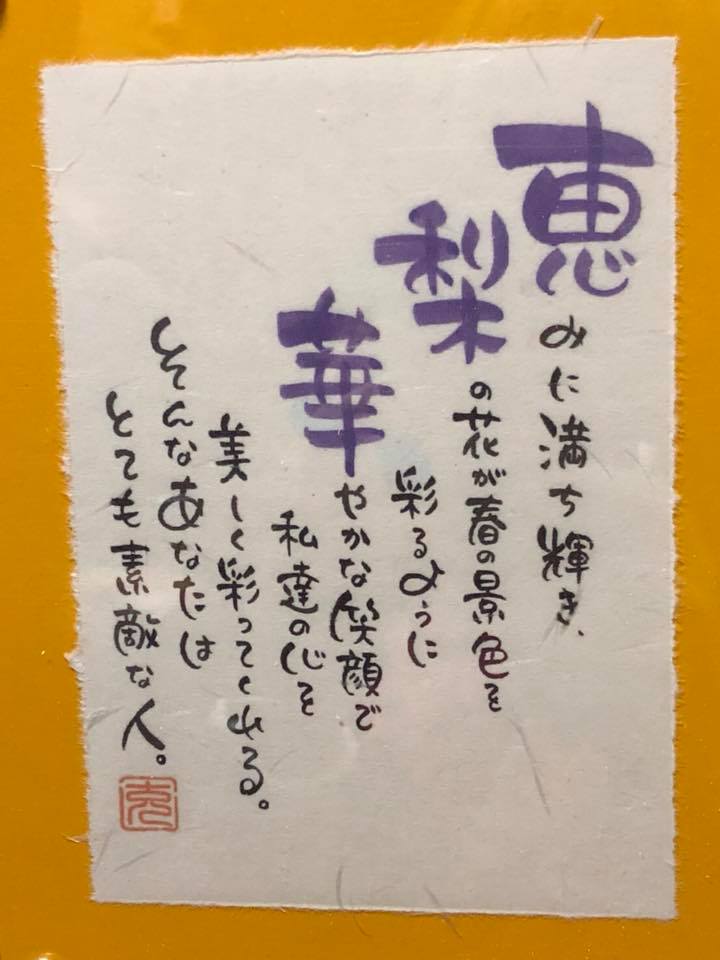 恵みに満ち輝き、
梨の花が春の景色を
彩るように
華やかな笑顔で
私達の心を
美しく彩ってくれる。
そんなあなたは
とても素敵な人。